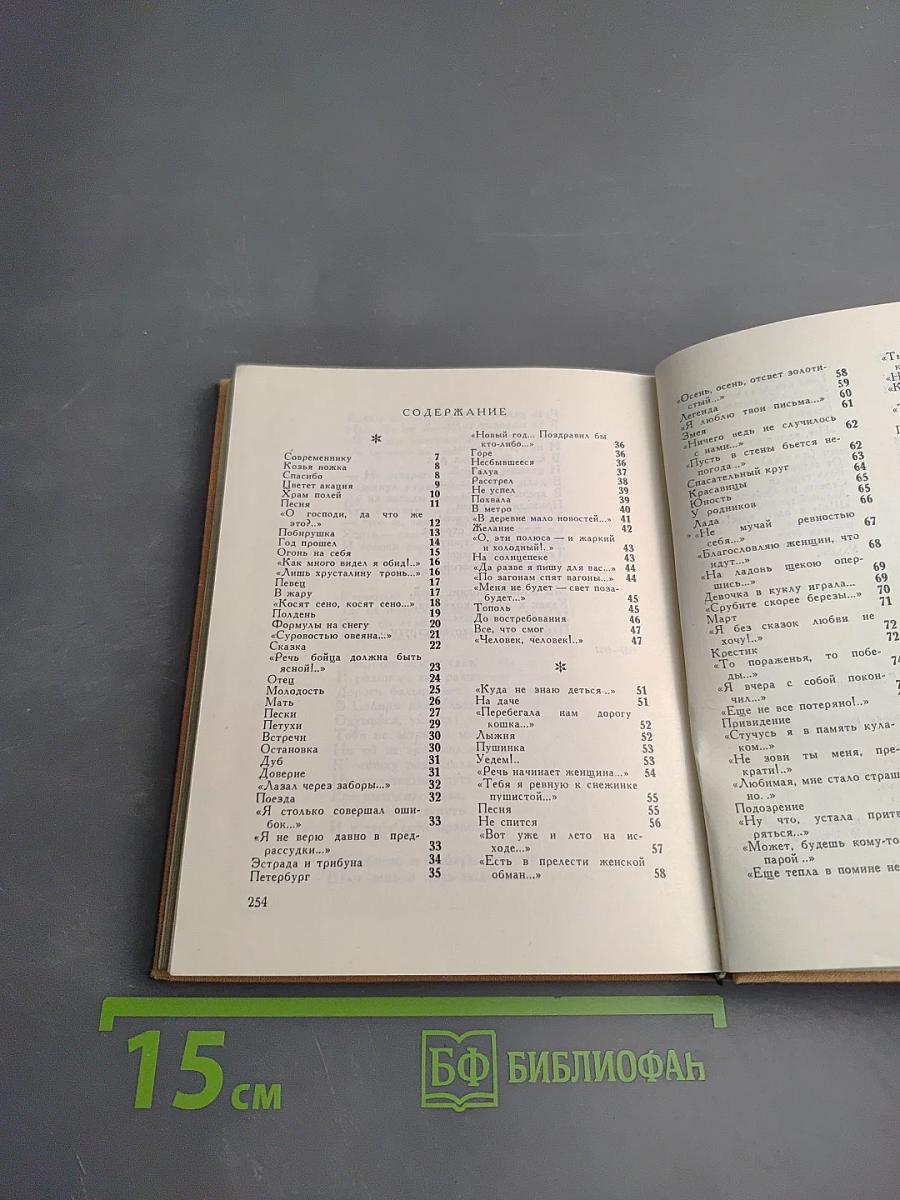 СОДЕРЖАНИЕ
*
Современнику 7
Козья ножка 8
Спасибо 8
Цветет акация 9
Храм полей 10
Песня 11
«О господи, да что же
это?..» 12
Побирушка 13
Год прошел 14
Огонь на себя 15
«Как много видел я обид!..» 16
«Лишь хрусталину тронь...» 16
Певец 17
В жару 17
«Косят сено, косят сено...» 18
Полдень 19
Формулы на снегу 20
«Суровостью овеяна...» 21
Сказка 22
«Речь бойца должна быть
ясной!..» 23
Отец 24
Молодость 25
Мать 26
Пески 27
Петухи 29
Встречи 30
Остановка 30
Дуб 31
Доверие 31
«Лазал через заборы...» 32
Поезда 32
«Я столько совершал оши-
бок...» 33
«Я не верю давно в пред-
рассудки...» 33
Эстрада и трибуна 34
Петербург 35
254
«Новый год... Поздравил бы
кто-либо...» 36
Горе 36
Несбывшееся 36
Галуа 37
Расстрел 38
Не успел 39
Похвала 39
В метро 40
«В деревне мало новостей...» 41
Желание 42
«О, эти полюса — и жаркий
и холодный!..» 43
На солнцепеке 43
«Да разве я пишу для вас...» 44
«По загонам спят вагоны...» 44
«Меня не будет — свет поза-
будет...» 45
Тополь 45
До востребования 46
Все, что смог 47
«Человек, человек!..» 47
*
«Куда не знаю деться..» 51
На даче 51
«Перебегала нам дорогу
кошка...» 52
Лыжня 52
Пушинка 53
Уедем!.. 53
«Речь начинает женщина...» 54
«Тебя я ревную к снежинке
пушистой...» 55
Песня 55
Не спится 56
«Вот уже и лето на ис-
ходе...» 57
«Есть в прелести женской
обман...» 58
«Осень, осень, отсвет золоти-
стый...» 58
Легенда 59
«Я люблю твои письма...» 60
Змея 61
«Ничего ведь не случилось
с нами...» 62
«Пусть в стены бьется не-
погода...» 62
Спасательный круг 63
Красавицы 64
Юность 65
У родников 65
Лада 66
«Не мучай ревностью
себя...» 67
«Благословляю женщин, что
идут...» 68
«На ладонь щекою опер-
шись...» 69
Девочка в куклу играла... 69
«Срубите скорее березы...» 70
Март 71
«Я без сказок любви не
хочу!..» 72
Крестик 72
«То пораженья, то побе-
ды...»
«Я вчера с собой покон-
чил...»
«Еще не все потеряно!..»
Привидение
«Стучусь я в память кула-
ком...»
«Не зови ты меня, пре-
крати!..»
«Любимая, мне стало страш
но..»
Подозрение
«Ну что, устала притв
ряться...»
«Может, будешь кому-то
парой ..»
«Еще тепла в помине не
15 см
БФ БИБЛИОФАҺ